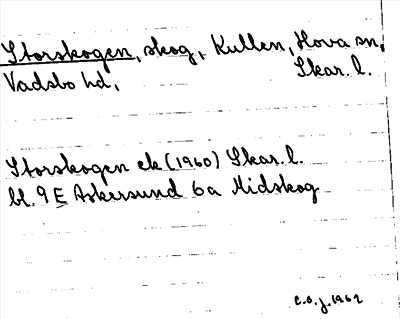 Storskogen, skog, Kullen, Hova sn,
Vadsbo hd, Skar. l.
Storskogen ek (1960) Skar. l.
bl. 9 E Askersund 6a Midskog
C.O.J. 1962